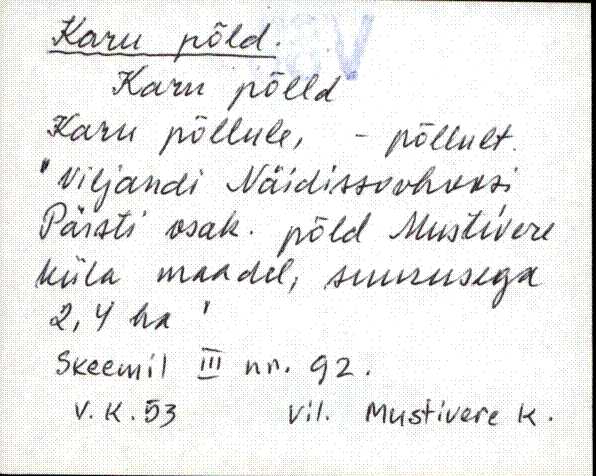 Karu põld.
Karu põlld
Karu põllule, - põllult.
"Viljandi Näidissovhoosi
Pärsti osak. põld Mustivere
küla maadel, suurusega
2,4 ha"
Skeemil III nr. 92.
V.K.53 Vil. Mustivere k.